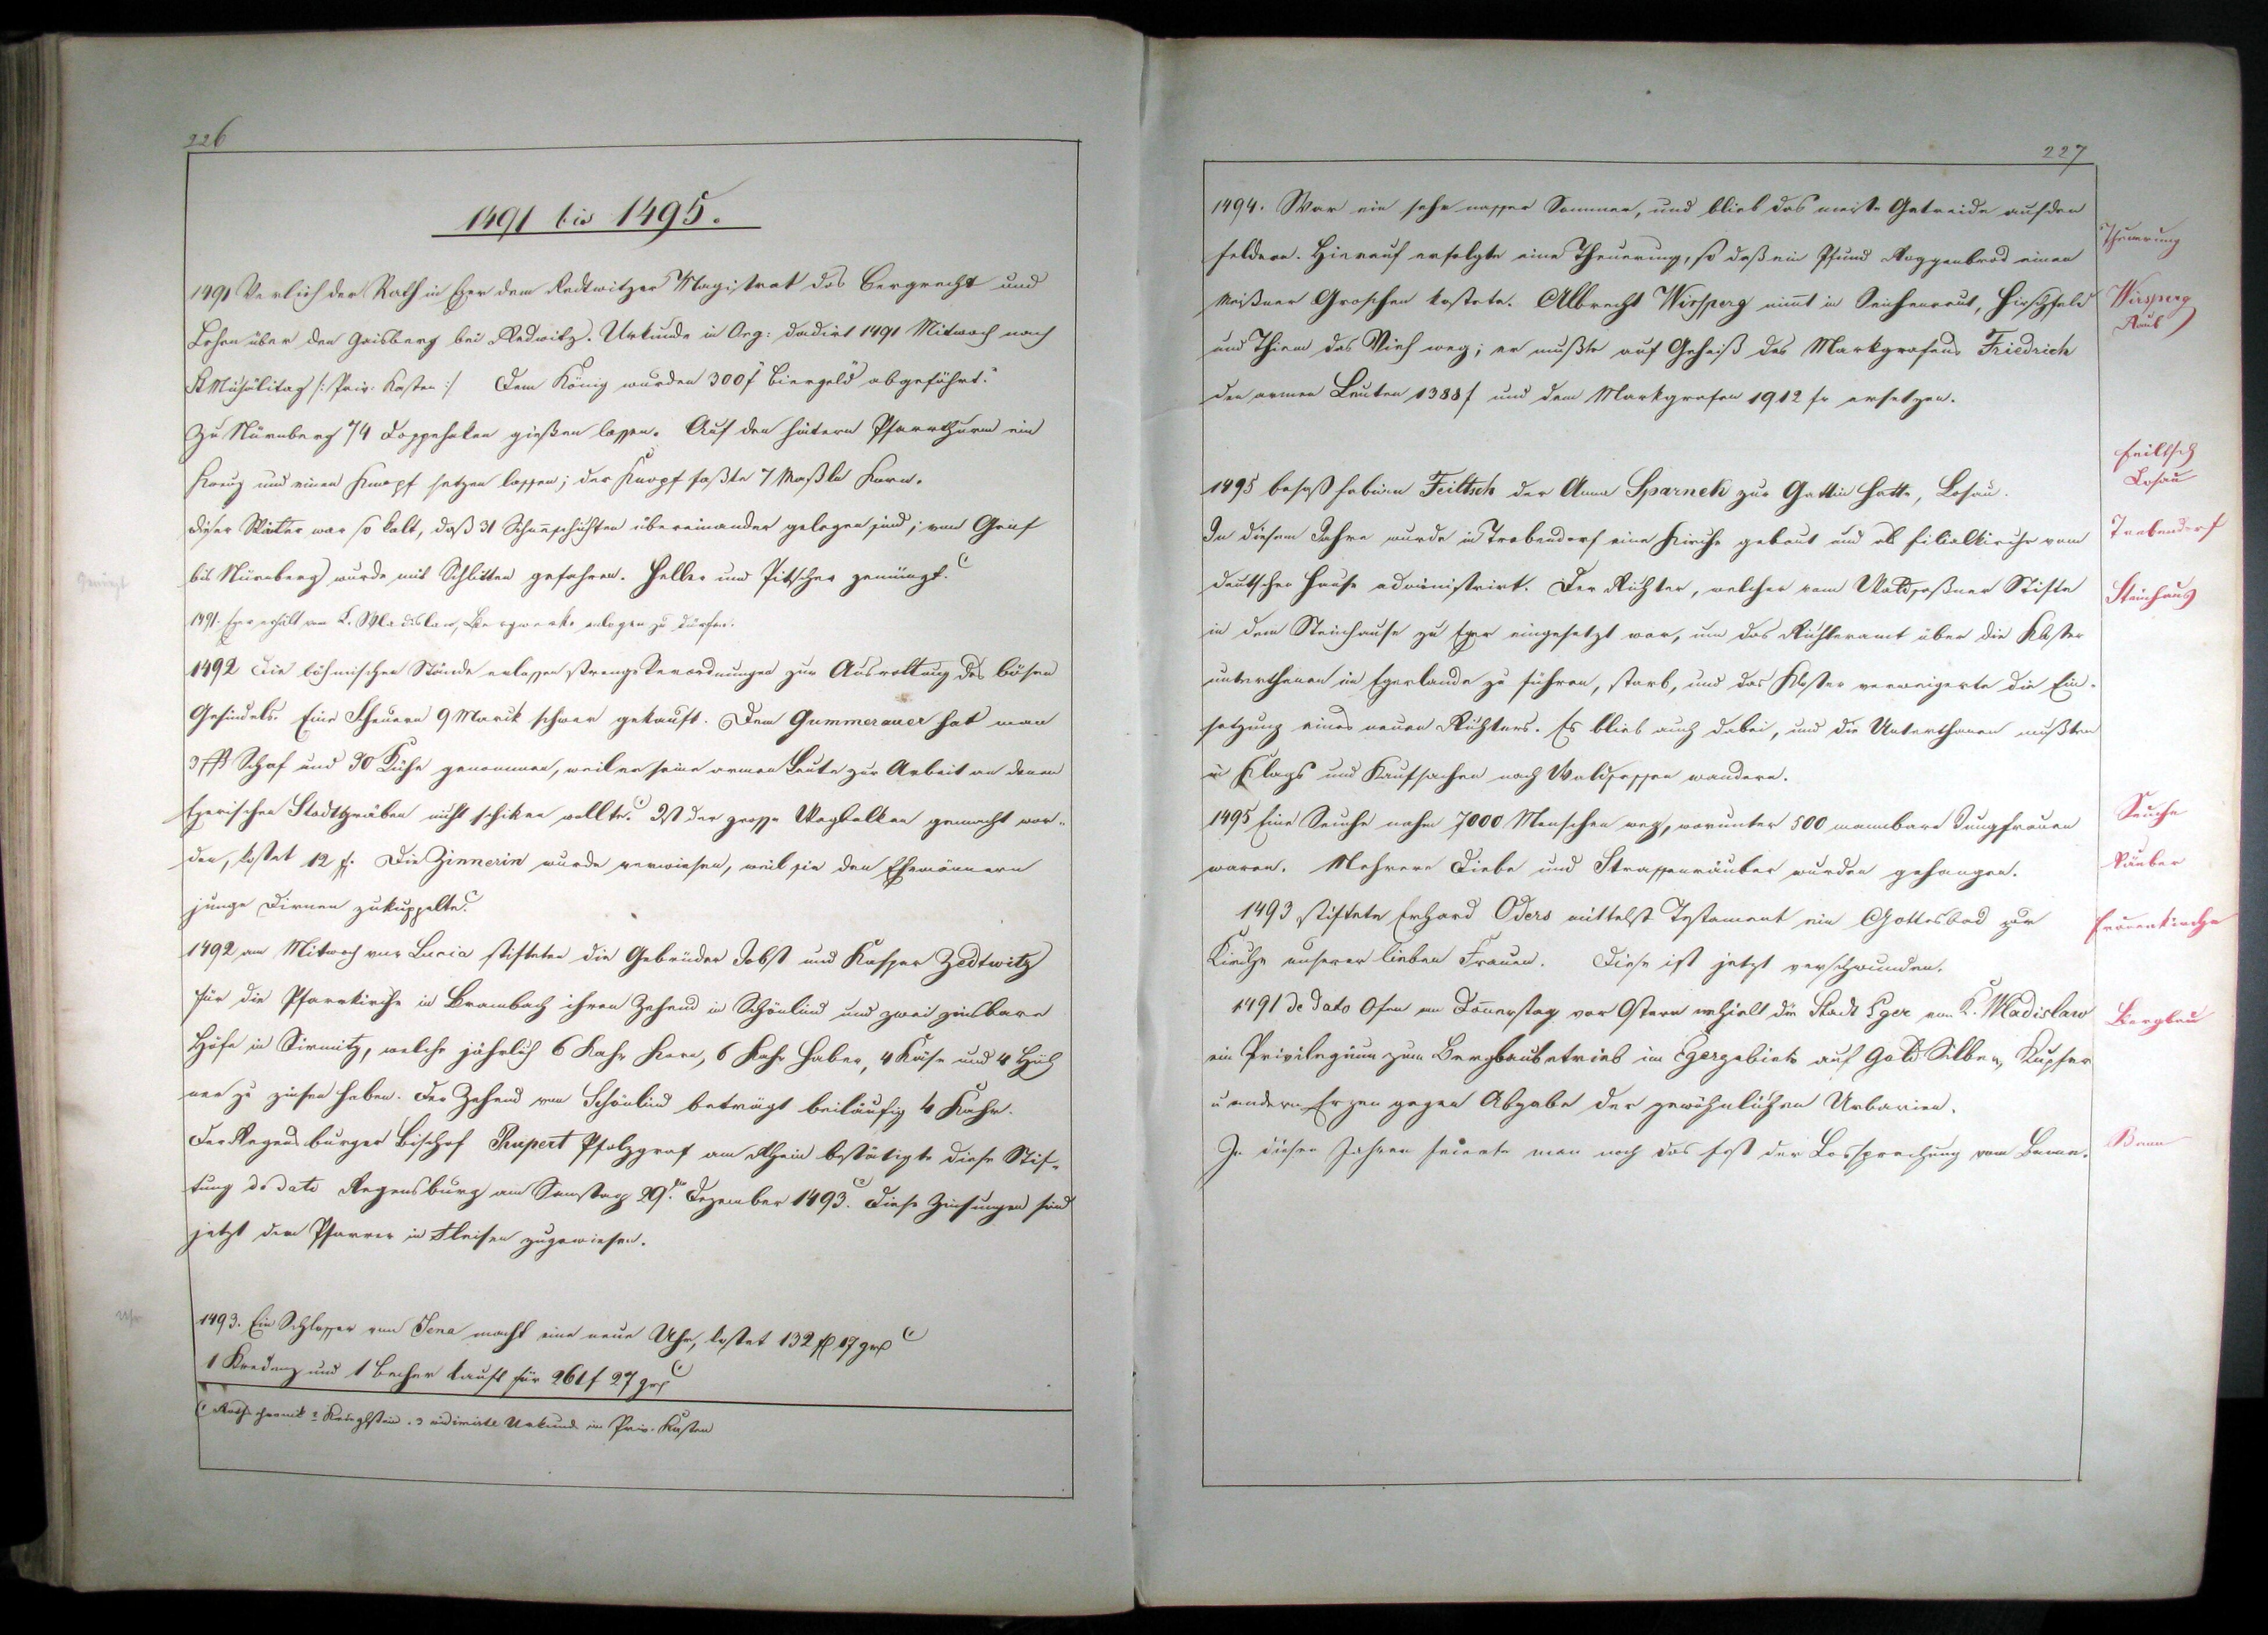 226
1491 bis 1495.
1491 Verlieh der Rath in Eger dem Redwitzer Magistrat das Bergrecht und
Lehen über den Gaisberg bei Redwitz. Urkunde in Org: dadirt 1491 Mitwoch nach
St /: Priv: Kasten :/ Dem König wurden 300 f Biergeld abgeführt.
Zu Nürnberg 74 Doppehaken gießen lassen. Auf den hintern Pfarrthurm ein
Kreuz und einen Knopf setzen lassen; der Knopf faßte 7 Maßln Korn.
Dieser Winter war so kalt, daß 31 Schneeschichten übereinander gelegen sind; von Genf
bis Nürnberg wurde mit Schlitten gefahren. Heller und Pitscher gemüngt.
1491. Eger erhält von K. Wladislaw, Bergwerke anlegen zu dürfen.
1492 Die böhmischen Stände erlassen strenge Verordnungen zur Ausrottung des bösen
Gesindels. Eine 9 Marck schwer gekauft. Dem Gummerauer hat man
Schaf und 30 Kühe genommen, weil er seine armen Leute zur Arbeit an denen
Egerischen Stadtgräben nicht schiken wollte. Ist der grosse Wagbalken gemacht wor-
den, kostet 12 f. Die Zinnerin wurde verwiesen, weil sie den Ehemännern
junge Dirnen zukuppelte.
1492 am Mitwoch vor Lucia stifteten die Gebrüder Jobst und Kaspar Zedtwitz
für die Pfarrkirche in Brambach ihren Zehend in Schönlind und zwei zinsbare
Höfe in Sirmitz, welche jährlich 6 Kahr Korn, 6 Kahr Haber, 4 Käse und 4 Hüh
ner zu zinsen haben. Der Zehend von Schönlind beträgt beiläufig 4 Kahr.
Der Regensburger Bischof Rupert Pfalzgraf am Rhein bestätigte diese Stif-
tung de dato Regensburg am Samstag 29. Dezember 1493. Diese Zinsungen sind
jetzt dem Pfarrer in Fleisen zugewiesen.
1493. Ein Schlosser von Jena macht eine neue Uhr, kostet 132 f 17 gr
1 Kredenz und 1 Becher kauft für 261 f 27 gr
Rathschronik 2 3 vidimirte Urkunde im Priv. Kasten
Uhr
227
1494. War ein sehr nasser Sommer, und blieb das meiste Getreide auf den
Feldern. Hierauf erfolgte eine Theuerung, so daß ein Pfund Roggenbrod einen
Meißner Groschen kostete. Albrecht Wirsperg nimt in Seichenreut, Hirschfeld
und Thiem das Vieh weg; er mußte auf Geheiß des Markgrafens Friedrich
den armen Leuten 1388 f und dem Markgrafen 1912 fr ersetzen.
1495 besaß Fabian Feiltsch der Anna Sparnek zur Gattin hatte, Losau.
In diesem Jahre wurde in Trebendorf eine Kirche gebaut und als Filialkirche vom
deutschen Hause administrirt. Der Richter, welcher vom Waldsaßner Stifte
in dem Steinhause zu Eger eingesetzt war, um das Richteramt über die Kloster
unterthanen im Egerlande zu führen, starb, und das Kloster verweigerte die Ein-
setzung eines neuen Richters. Es blieb auch dabei, und die Unterthanen mußten
in Klags und Kaufsachen nach Waldsassen wandern.
1495 Eine Seuche nahm 7000 Menschen weg, worunter 500 mannbare Jungfrauen
waren. Mehrere Diebe und Strassenräuber wurden gehangen.
1493 stiftete Erhard Oders mittelst Testament ein Gottesbad zur
Kirche unserer lieben Frauen. Diese ist jetzt verschwunden.
1491 de dato Ofen am Donnerstag vor Ostern erhielt die Stadt Eger von K. Wladislaw
ein Privilegium zum Bergbaubetrieb im Egergebiete auf Gold Silber, Kupfer
u andern Erzen gegen Abgabe der gewöhnlichen Urbarien.
In diesen Jahren feierte man noch das Fest der Lossprechung vom Banne.
Theuerung
Wirsperg
Raub
Feiltsch
Losau
Trebendorf
Steinhaus
Seuche
Räuber
Frauenkirche
Bergbau
Bann